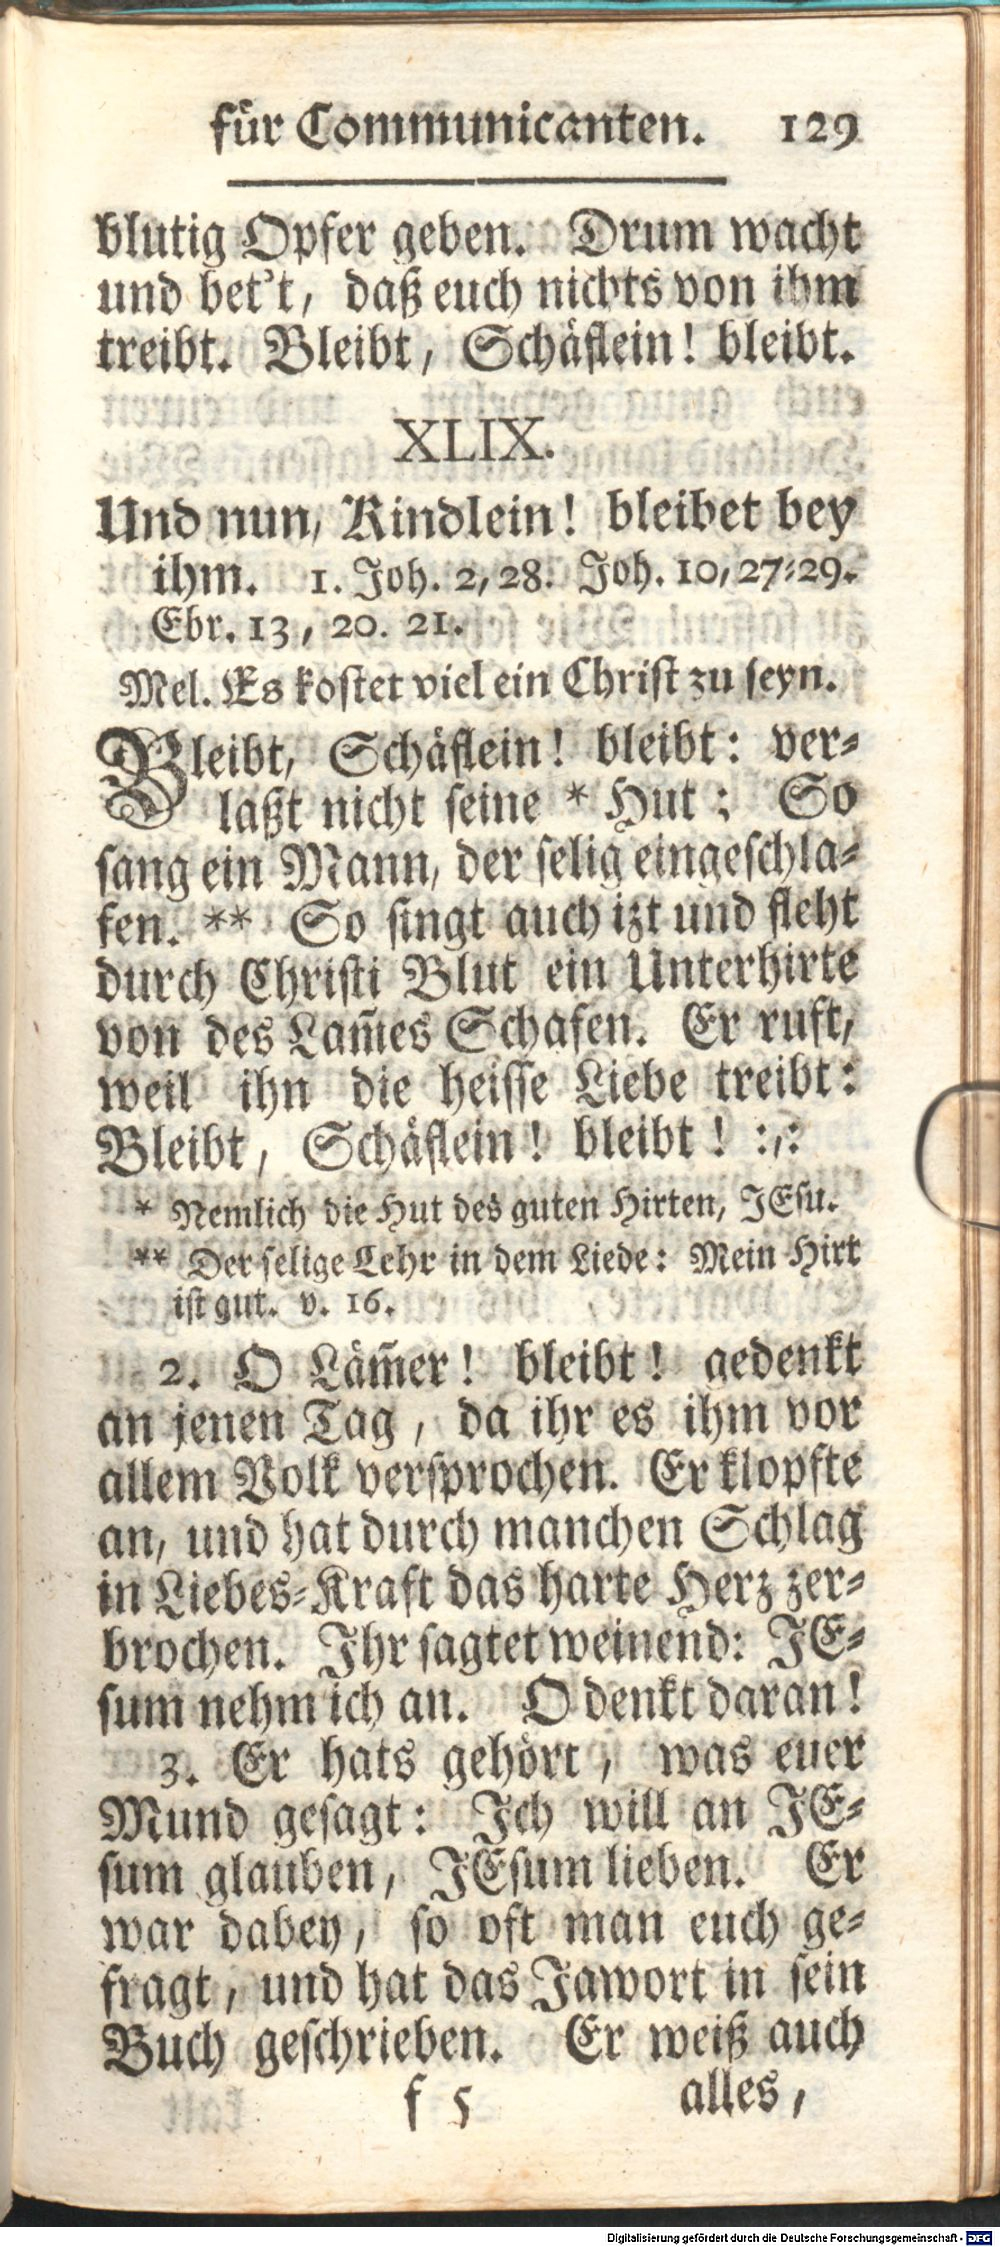 für Communicanten. 129
blutig Opfer geben. Drum wacht
und bet't, daß euch nichts von ihm
treibt. Bleibt, Schäflein! bleibt.
XLIX.
Und nun, Kindlein! bleibet bey
ihm. 1. Joh. 2, 28. Joh. 10, 27-29.
Ebr. 13, 20. 21.
Mel. Es kostet viel ein Christ zu seyn.
Bleibt, Schäflein! bleibt: ver-
laßt nicht seine * Hut; So
sang ein Mann, der selig eingeschla-
fen. ** So singt auch izt und fleht
durch Christi Blut ein Unterhirte
von des Lam̄es Schafen. Er ruft,
weil ihn die heisse Liebe treibt:
Bleibt, Schäflein! bleibt! :,:
* Nemlich die Hut des guten Hirten, JEsu.
** Der selige Lehr in dem Liede: Mein Hirt
ist gut. v. 16.
2. O Läm̄er! bleibt! gedenkt
an jenen Tag, da ihr es ihm vor
allem Volk versprochen. Er klopfte
an, und hat durch manchen Schlag
in Liebes-Kraft das harte Herz zer-
brochen. Ihr sagtet weinend: JE-
sum nehm ich an. O denkt daran!
3. Er hats gehört, was euer
Mund gesagt: Ich will an JE-
sum glauben, JEsum lieben. Er
war dabey, so oft man euch ge-
fragt, und hat das Jawort in sein
Buch geschrieben. Er weiß auch
f 5 alles,
Digitalisierung gefördert durch die Deutsche Forschungsgemeinschaft - DFG